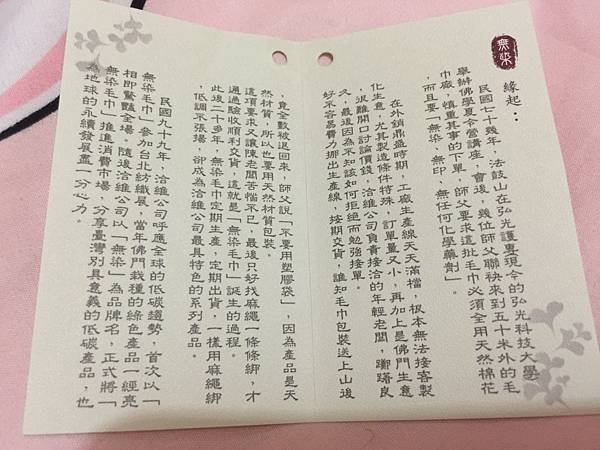 無染
緣起：
民國七十幾年，法鼓山在弘光護專現今的弘光科技大學
舉辦佛學夏令營講座，會後，幾位師父聯袂來到五十米外的毛
巾廠，慎重其事的下單，師父要求這批毛巾必須全用天然棉花
，而且要「無染、無印、無任何化學藥劑」。
在外銷鼎盛時期，工廠生產線天天滿檔，根本無法接客製
化生意，尤其製造條件特殊，訂單量又小，再加上是佛門生意
，很難開口討論價錢，洽維公司負責接洽的年輕老闆，躑躇良
久，最後因為不知該如何拒絕而勉強接單。
好不容易費力挪出生產線，按期交貨，誰知毛巾包裝送上山後
，竟全數被退回來，師父說「不要用塑膠袋」，因為產品是天
然材質，所以也要用天然材質包裝。
這項要求又讓陳老闆苦惱不已，最後只好找麻繩一條條綁，才
通過驗收順利交貨，這就是「無染毛巾」誕生的過程。
此後二十多年，無染毛巾定期生產，定期出貨，一樣用麻繩綁
，低調不張揚，卻成為洽維公司最具特色的系列產品。
民國九十九年，洽維公司呼應全球的低碳趨勢，首次以「
無染毛巾」參加台北紡織展，當年佛門栽種的綠色產品一經亮
相即驚豔全場。隨後洽維公司以「無染」為品牌名，正式將「
無染毛巾」推進消費市場，分享臺灣別具意義的低碳產品，也
為地球的永續發展盡一分心力。